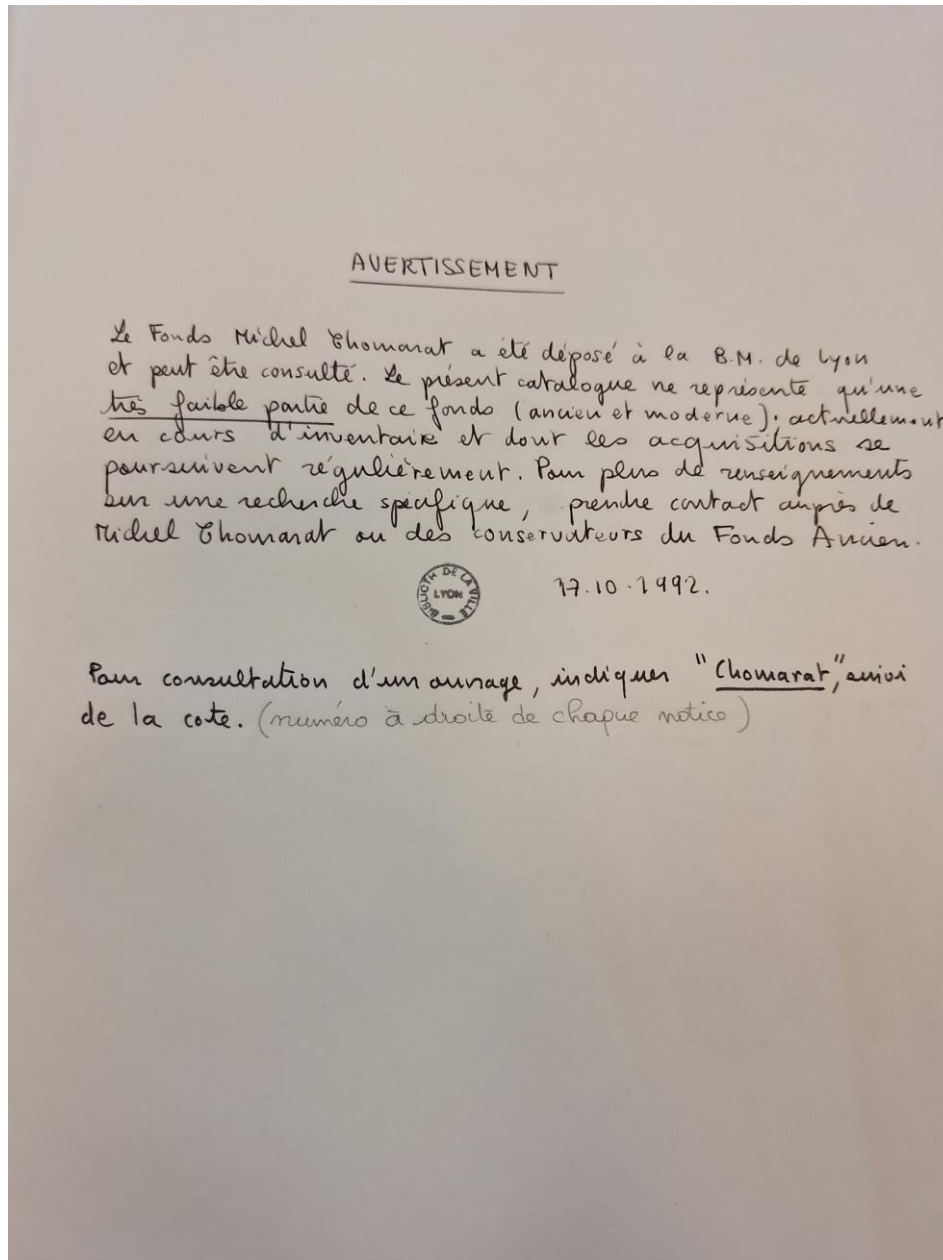 AVERTISSEMENT
Le Fonds Michel Chomarat a été déposé à la B.M. de Lyon
et peut être consulté. Le présent catalogue ne représente qu'une
très faible partie de ce fonds (ancien et moderne), actuellement
en cours d'inventaire et dont les acquisitions se
poursuivent régulièrement. Pour plus de renseignements
sur une recherche spécifique, prendre contact auprès de
Michel Chomarat ou des conservateurs du Fonds Ancien.
BIBLIOTH DE LA VILLE
LYON
17.10.1992.
Pour consultation d'un ouvrage, indiquer "Chomarat", suivi
de la cote. (numéro à droite de chaque notice)